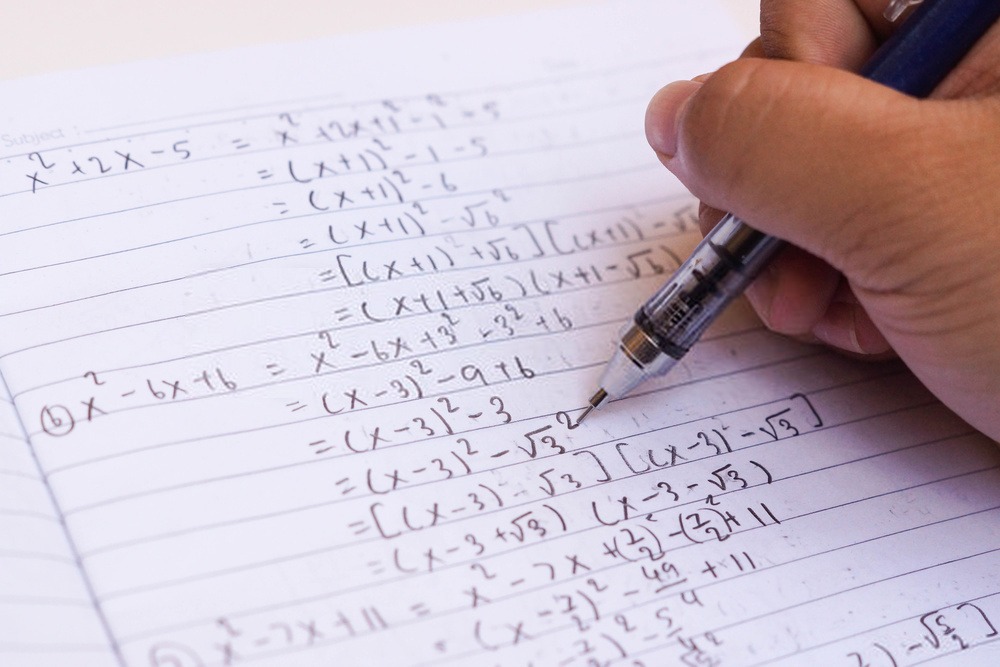 Subject :
x² + 2x - 5 = x² + 2x + 1² - 1² - 5
= (x+1)² - 1 - 5
= (x+1)² - 6
= (x+1)² - √6²
= [(x+1)² + √6] [(x+1) - √
= (x+1+√6) (x+1-√6)
(b) x² - 6x + 6 = x² - 6x + 3² - 3² + 6
= (x-3)² - 9 + 6
= (x-3)² - 3
= (x-3)² - √3²
= [(x-3) - √3] [(x-3)² - √3]
= (x-3+√3) (x-3-√3)
x² - 7x + 11 = x² - 7x + (7/2)² - (7/2)² + 11
= (x - 7/2)² - 49/4 + 11
- 7/2)² - 5/4
) - √5/2]